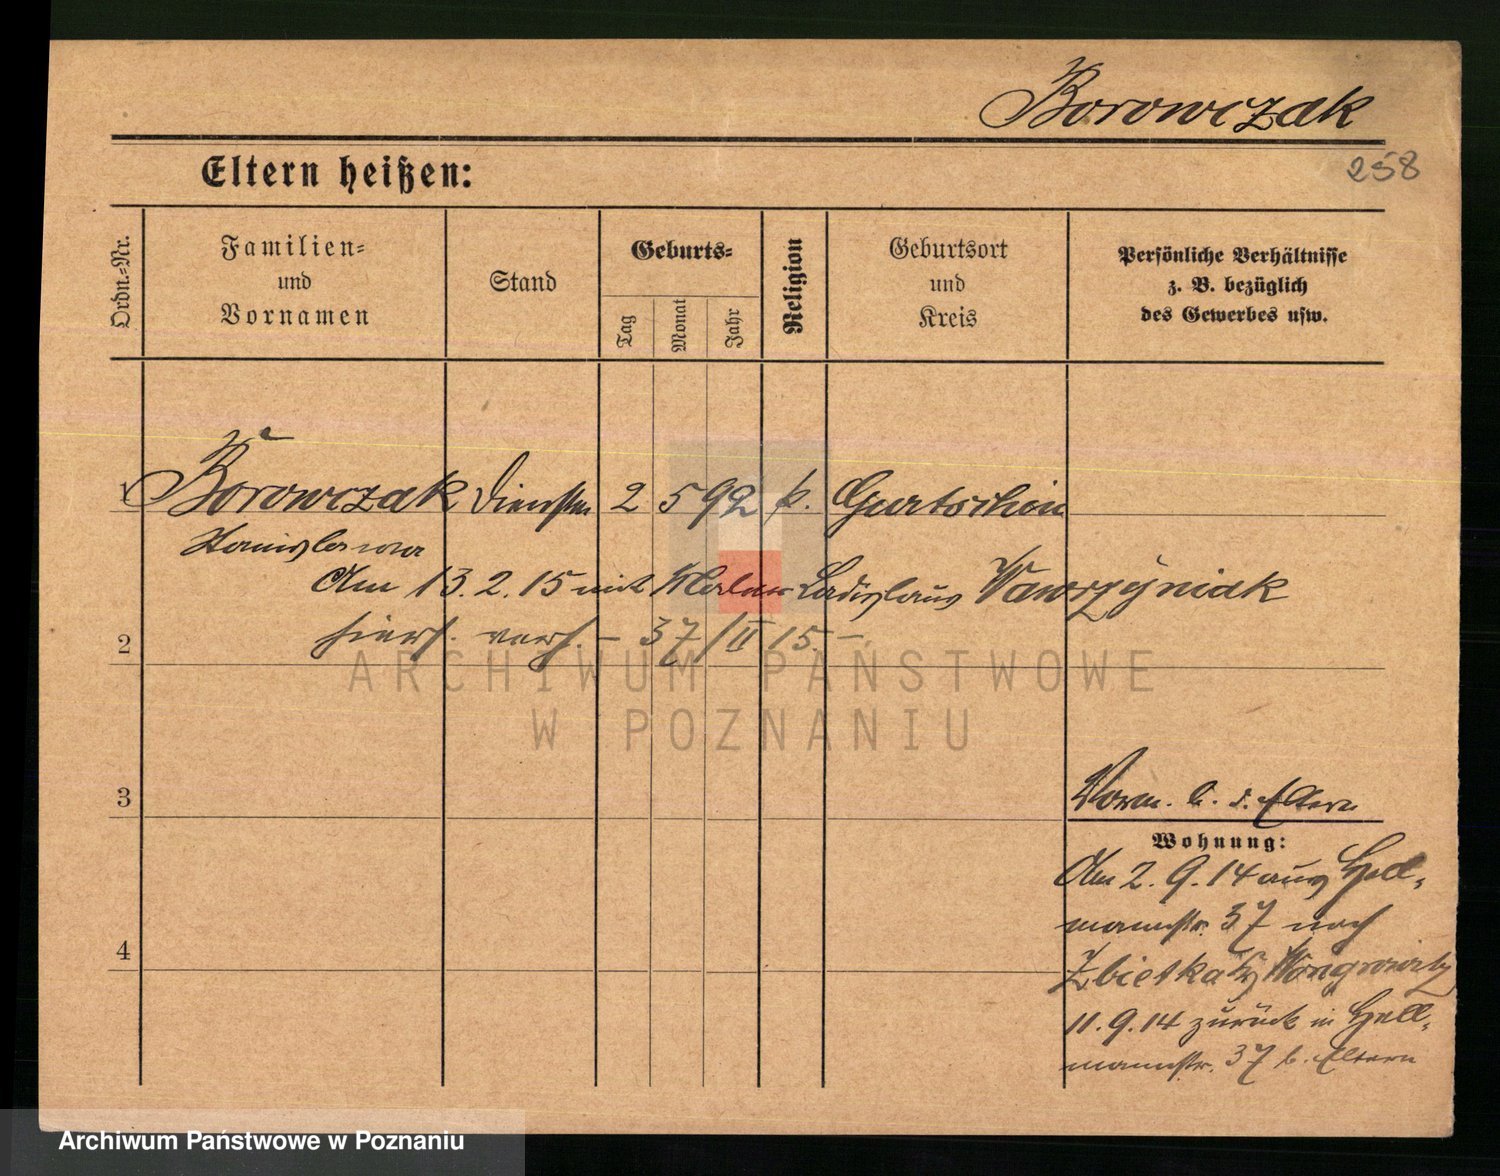 Borowczak
258
Eltern heißen:
Ordn.-Nr.
Familien-
und
Vornamen
Stand
Geburts-
Tag
Monat
Jahr
Religion
Geburtsort
und
Kreis
Persönliche Verhältnisse
z. B. bezüglich
des Gewerbes usw.
1 Borowczak 2 5 92 k. Gurtschin
Stanislawa
Am 13.2.15 mit Maler Ladislaus Wawrzyniak
hiers. verh. – 37/II 15. –
2
ARCHIWUM PAŃSTWOWE
W POZNANIU
3
Worm. b. d. Eltern
Wohnung:
Am 2.9.14 aus Hell-
mannstr. 37 nach
4
Zbietka Kr. Wongrowitz
11.9.14 zurück in Hell-
mannstr. 37 b. Eltern
Archiwum Państwowe w Poznaniu